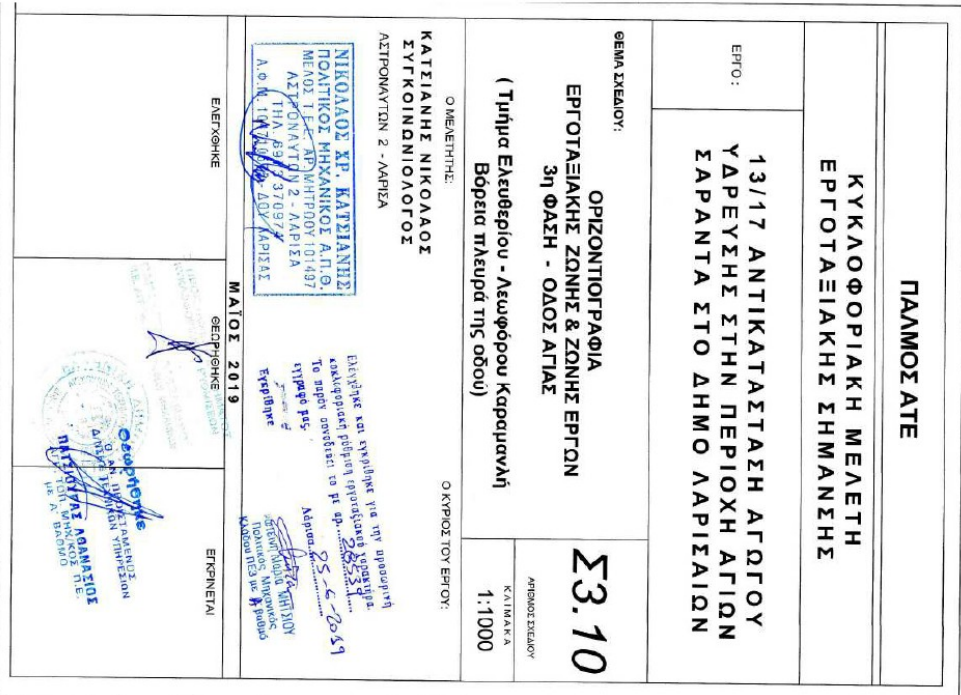 ΠΑΛΜΟΣ ΑΤΕ
ΚΥΚΛΟΦΟΡΙΑΚΗ ΜΕΛΕΤΗ
ΕΡΓΟΤΑΞΙΑΚΗΣ ΣΗΜΑΝΣΗΣ
ΕΡΓΟ:
13/17 ΑΝΤΙΚΑΤΑΣΤΑΣΗ ΑΓΩΓΟΥ
ΥΔΡΕΥΣΗΣ ΣΤΗΝ ΠΕΡΙΟΧΗ ΑΓΙΩΝ
ΣΑΡΑΝΤΑ ΣΤΟ ΔΗΜΟ ΛΑΡΙΣΑΙΩΝ
ΘΕΜΑ ΣΧΕΔΙΟΥ:
ΟΡΙΖΟΝΤΙΟΓΡΑΦΙΑ
ΕΡΓΟΤΑΞΙΑΚΗΣ ΖΩΝΗΣ & ΖΩΝΗΣ ΕΡΓΩΝ
3η ΦΑΣΗ - ΟΔΟΣ ΑΓΙΑΣ
( Τμήμα Ελευθερίου - Λεωφόρου Καραμανλή
Βόρεια πλευρά της οδού)
Σ3.10
ΑΡΙΘΜΟΣ ΣΧΕΔΙΟΥ
ΚΛΙΜΑΚΑ
1:1000
Ο ΜΕΛΕΤΗΤΗΣ:
ΚΑΤΣΙΑΝΗΣ ΝΙΚΟΛΑΟΣ
ΣΥΓΚΟΙΝΩΝΙΟΛΟΓΟΣ
ΑΣΤΡΟΝΑΥΤΩΝ 2 - ΛΑΡΙΣΑ
ΝΙΚΟΛΑΟΣ ΧΡ. ΚΑΤΣΙΑΝΗΣ
ΠΟΛΙΤΙΚΟΣ ΜΗΧΑΝΙΚΟΣ Α.Π.Θ.
ΜΕΛΟΣ Τ.Ε.Ε. ΑΡ. ΜΗΤΡΩΟΥ 101497
ΑΣΤΡΟΝΑΥΤΩΝ 2 - ΛΑΡΙΣΑ
ΤΗΛ. 6973 370974
Α.Φ.Μ. - ΔΟΥ ΛΑΡΙΣΑΣ
Ο ΚΥΡΙΟΣ ΤΟΥ ΕΡΓΟΥ:
Ελέγχθηκε και εγκρίθηκε για την προσωρινή
κυκλοφοριακή ρύθμιση εργοταξιακού χαρακτήρα.
Το παρόν συνοδεύει το με αρ.
έγγραφό μας.
Λάρισα 25-6-2019
Εγκρίθηκε
ΜΗΤΣΙΟΥ
Πολιτικός Μηχανικός
Κλάδου ΠΕ3 με Α βαθμό
ΜΑΪΟΣ 2019
ΕΛΕΓΧΘΗΚΕ
ΘΕΩΡΗΘΗΚΕ
ΕΓΚΡΙΝΕΤΑΙ
Θεωρήθηκε
Ο ΑΝ. ΠΡΟΪΣΤΑΜΕΝΟΣ
Δ/ΝΣΗΣ ΤΕΧΝΙΚΩΝ ΥΠΗΡΕΣΙΩΝ
ΠΑΤΣΙΟΥΡΑΣ ΑΘΑΝΑΣΙΟΣ
ΑΓΡ. ΤΟΠ. ΜΗΧ/ΚΟΣ Π.Ε.
ΜΕ Α' ΒΑΘΜΟ